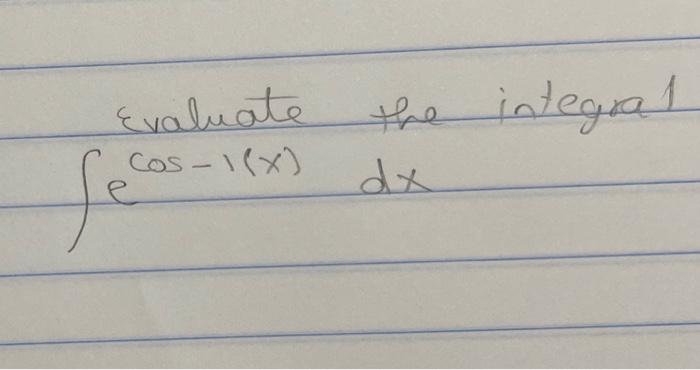 Evaluate the integral
∫e^cos-1(x) dx